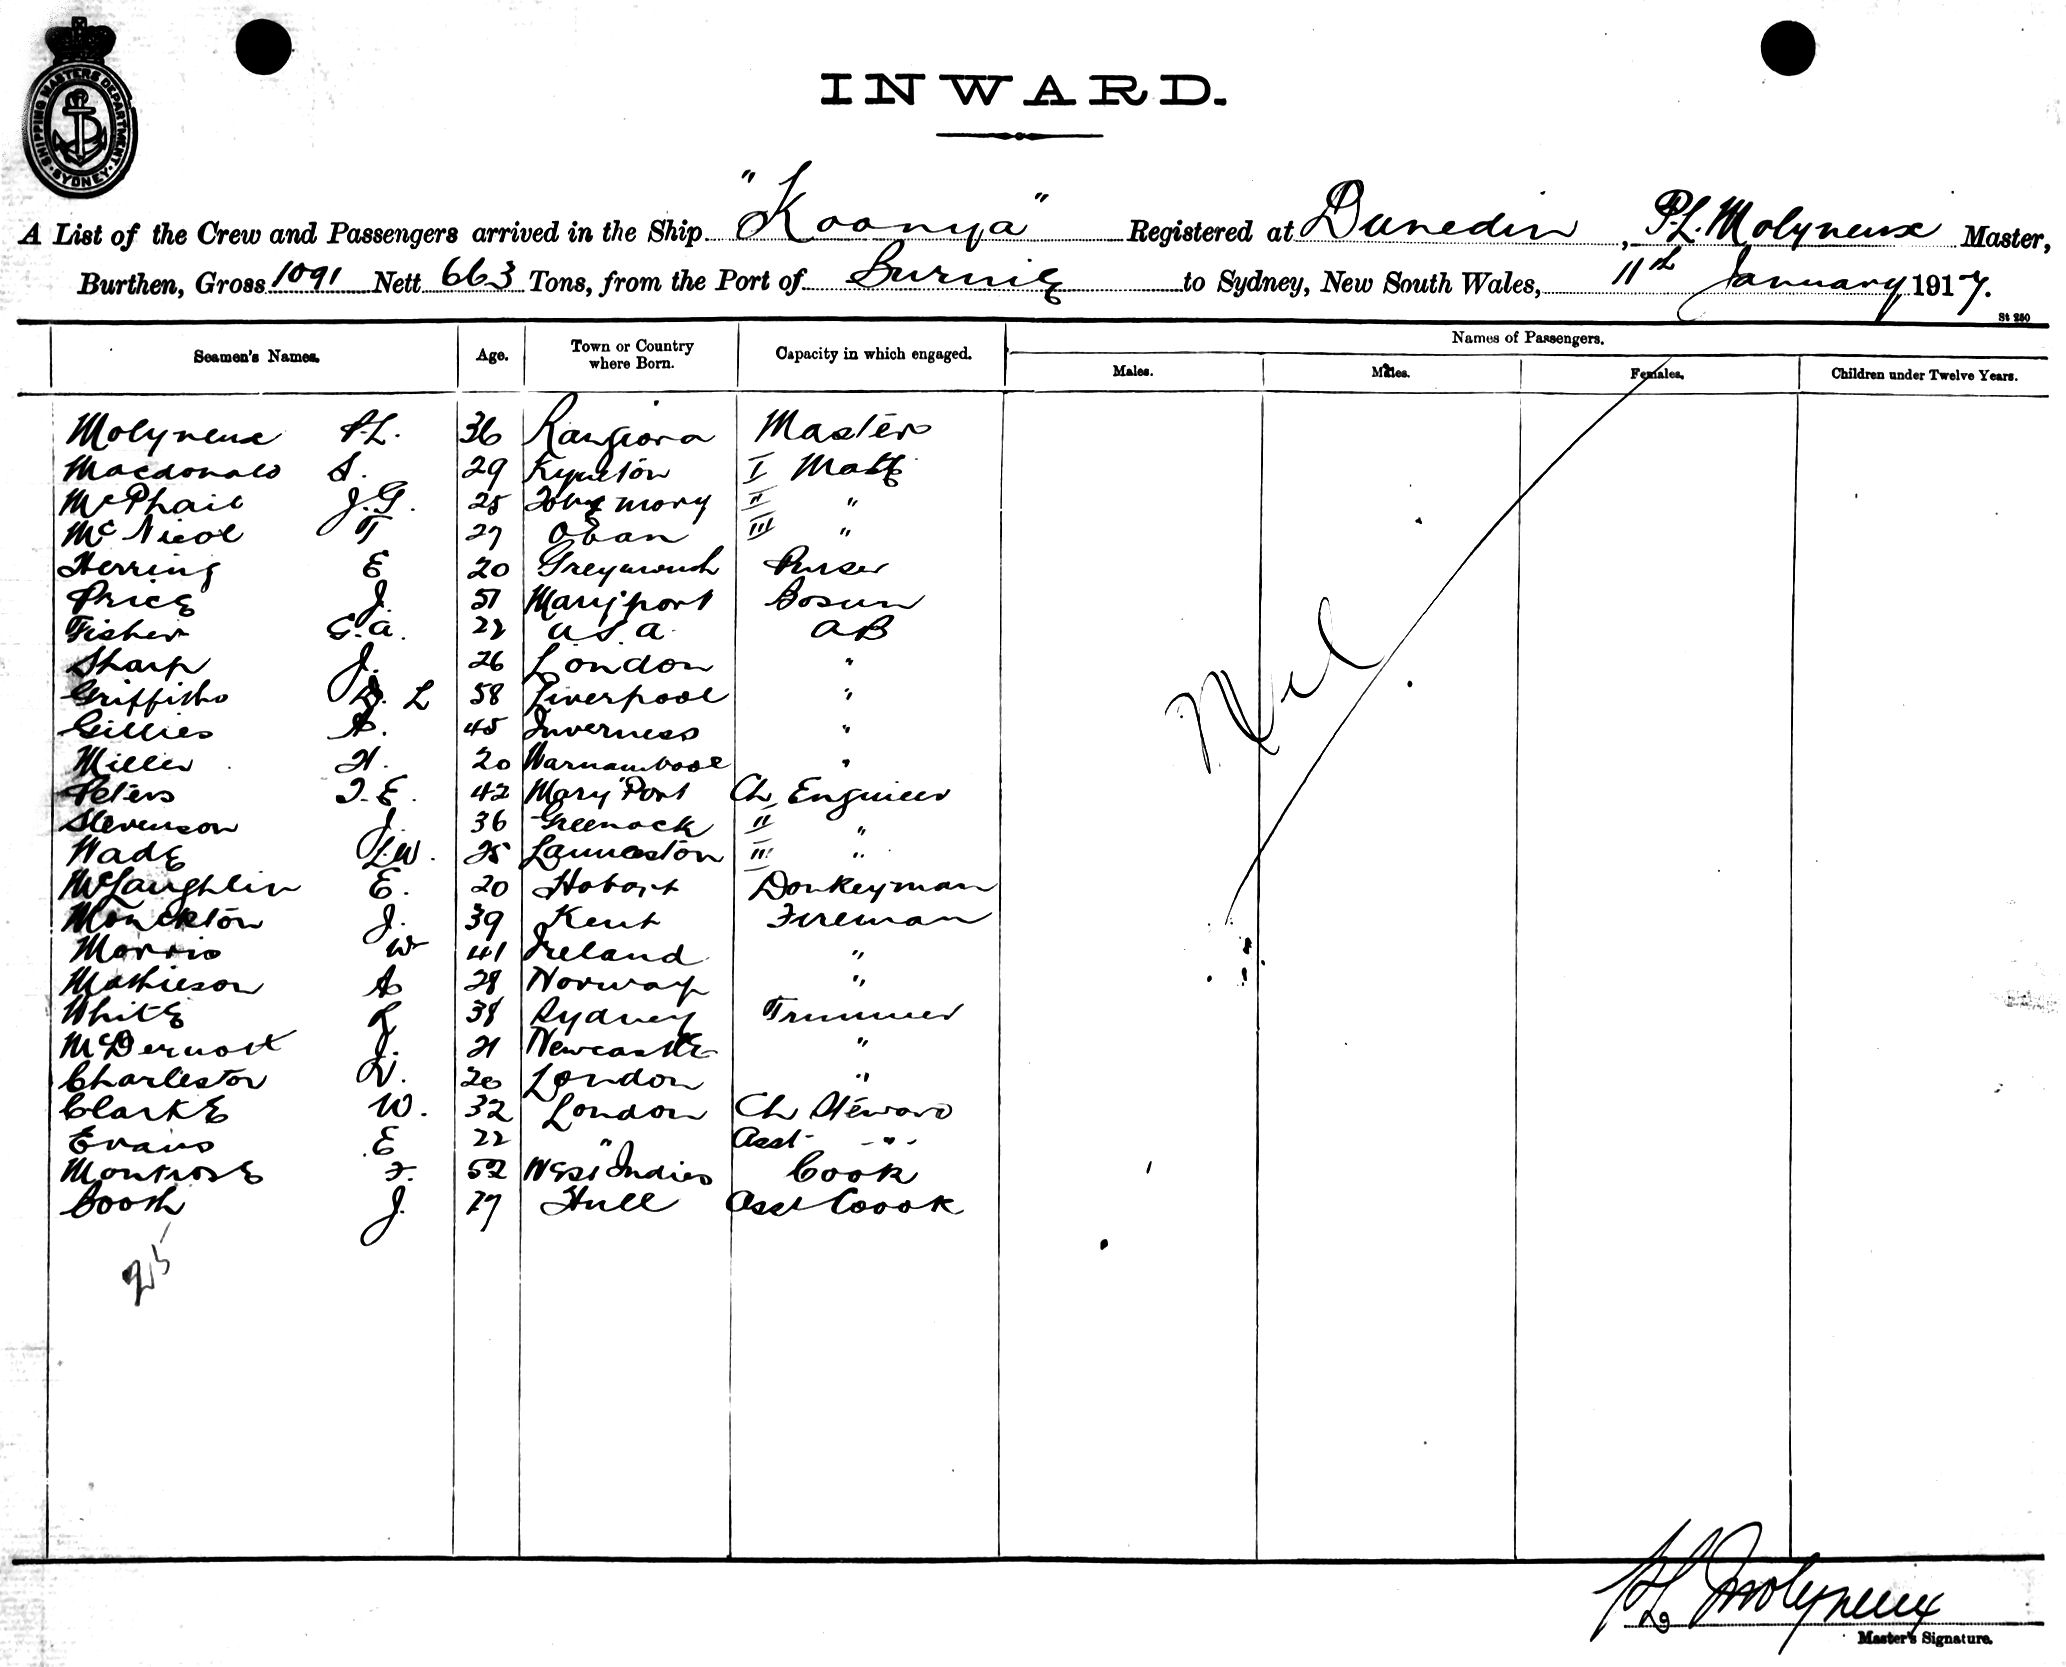 SHIPPING MASTERS DEPARTMENT
SYDNEY
INWARD.
A List of the Crew and Passengers arrived in the Ship "Koonya" Registered at Dunedin, P.L. Molyneux Master,
Burthen, Gross 1091 Nett 663 Tons, from the Port of Burnie to Sydney, New South Wales, 11th January 1917.
St 280
Seamen's Names. Age. Town or Country where Born. Capacity in which engaged. Names of Passengers.
Males. Males. Females. Children under Twelve Years.
Molyneux P.L. 36 Rangiora Master
Macdonald S. 29 Kyneton I Mate
McPhail J.G. 25 Tobermory II "
McNicol T 27 Oban III "
Herring E 20 Greymouth Purser
Price J. 51 Maryport Bosun
Fisher G.A. 22 U.S.A. AB
Sharp J. 26 London "
Griffiths D. L 58 Liverpool "
Gillies A. 45 Inverness "
Miller H. 20 Warnambool "
Peters T.E. 42 Mary Port Ch Engineer
Stevenson J. 36 Greenock II "
Wade L.W. 25 Launceston III "
McLaughlin E. 20 Hobart Donkeyman
Monckton J. 39 Kent Fireman
Morris W 41 Ireland "
Mathieson A 28 Norway "
White R 38 Sydney Trimmer
McDermott J. 21 Newcastle "
Charleston V. 20 London "
Clarke W. 32 London Ch Steward
Evans E 22 " Asst - " -
Montrose F. 52 West Indies Cook
Booth J. 17 Hull Asst Coook
25
Nil
P L Molyneux
Master's Signature.